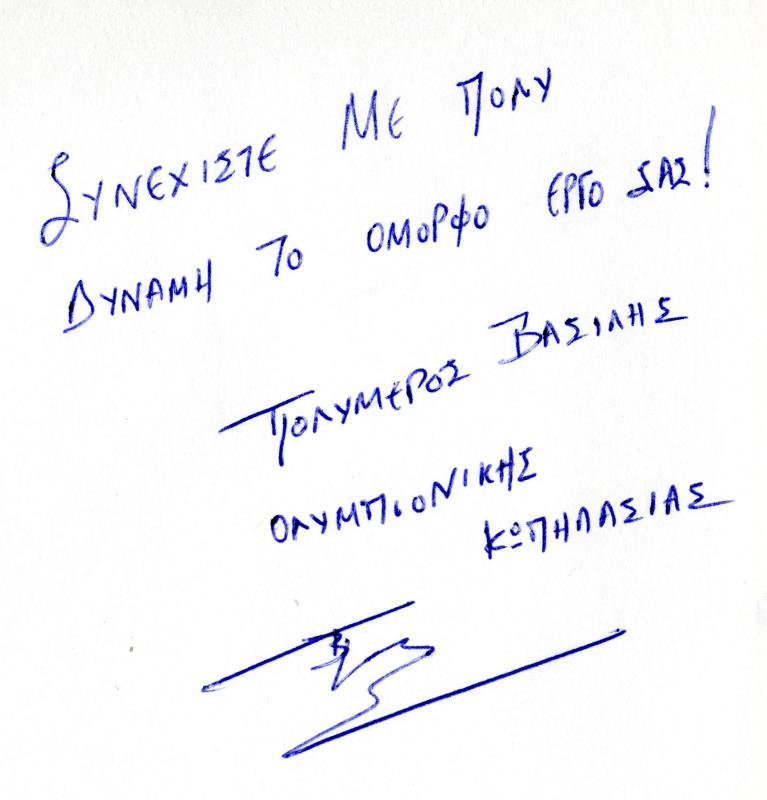 ΣΥΝΕΧΙΣΤΕ ΜΕ ΠΟΛΥ
ΔΥΝΑΜΗ ΤΟ ΟΜΟΡΦΟ ΕΡΓΟ ΣΑΣ!
ΠΟΛΥΜΕΡΟΣ ΒΑΣΙΛΗΣ
ΟΛΥΜΠΙΟΝΙΚΗΣ
ΚΩΠΗΛΑΣΙΑΣ